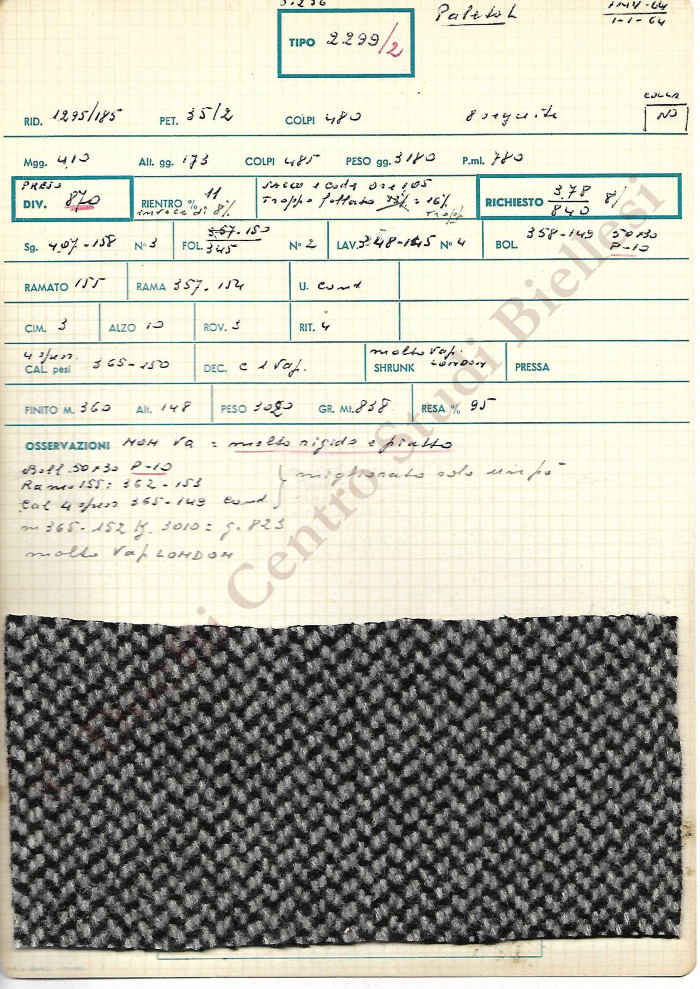 TIPO 2299/2
Paletot
1-1-64
RID. 1295/185 PET. 35/2 COLPI 480 Eseguite
COLLA
NO
Mgg. 410 Alt. gg. 173 COLPI 485 PESO gg. 3180 P.ml. 780
PRESO
DIV. 870
RIENTRO % 11
invece di 8%
SACCO e Coda ore 1,05
Troppo follato 13% = 16%
Tropp
RICHIESTO 3.78 8%
840
Sg. 407-158 N° 3 FOL. 357-150 N° 2 LAV. 348-145 N° 4 BOL. 358-149 50+30
345 P-10
RAMATO 155 RAMA 357-154 U. cond
CIM. 3 ALZO 10 ROV. 3 RIT. 4
4 spess.
CAL. pesi 365-150 DEC. c 1 Vap. SHRUNK LONDON PRESSA
molto Vap.
FINITO M. 360 Alt. 148 PESO 3020 GR. Mt. 838 RESA % 95
OSSERVAZIONI NON VA = molto rigido e piatto
Boll. 50+30 P-10
Ramo 155: 362-153
Cal 4 spess 365-149 cond.
migliorato solo un pò
m 365-152 Kg. 3010 = g. 823
molto Vap LONDON
Centro Studi Biellesi